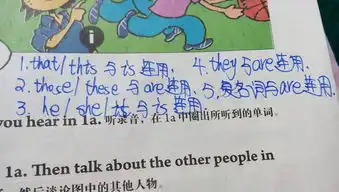 i
1.that/this与is连用. 4.they与are连用.
2.those/these与are连用. 5.复名词与are连用.
3. he/she/it与is连用.
you hear in 1a. 听录音，在1a中圈出所听到的单词。
1a. Then talk about the other people in
然后谈论图中的其他人物。